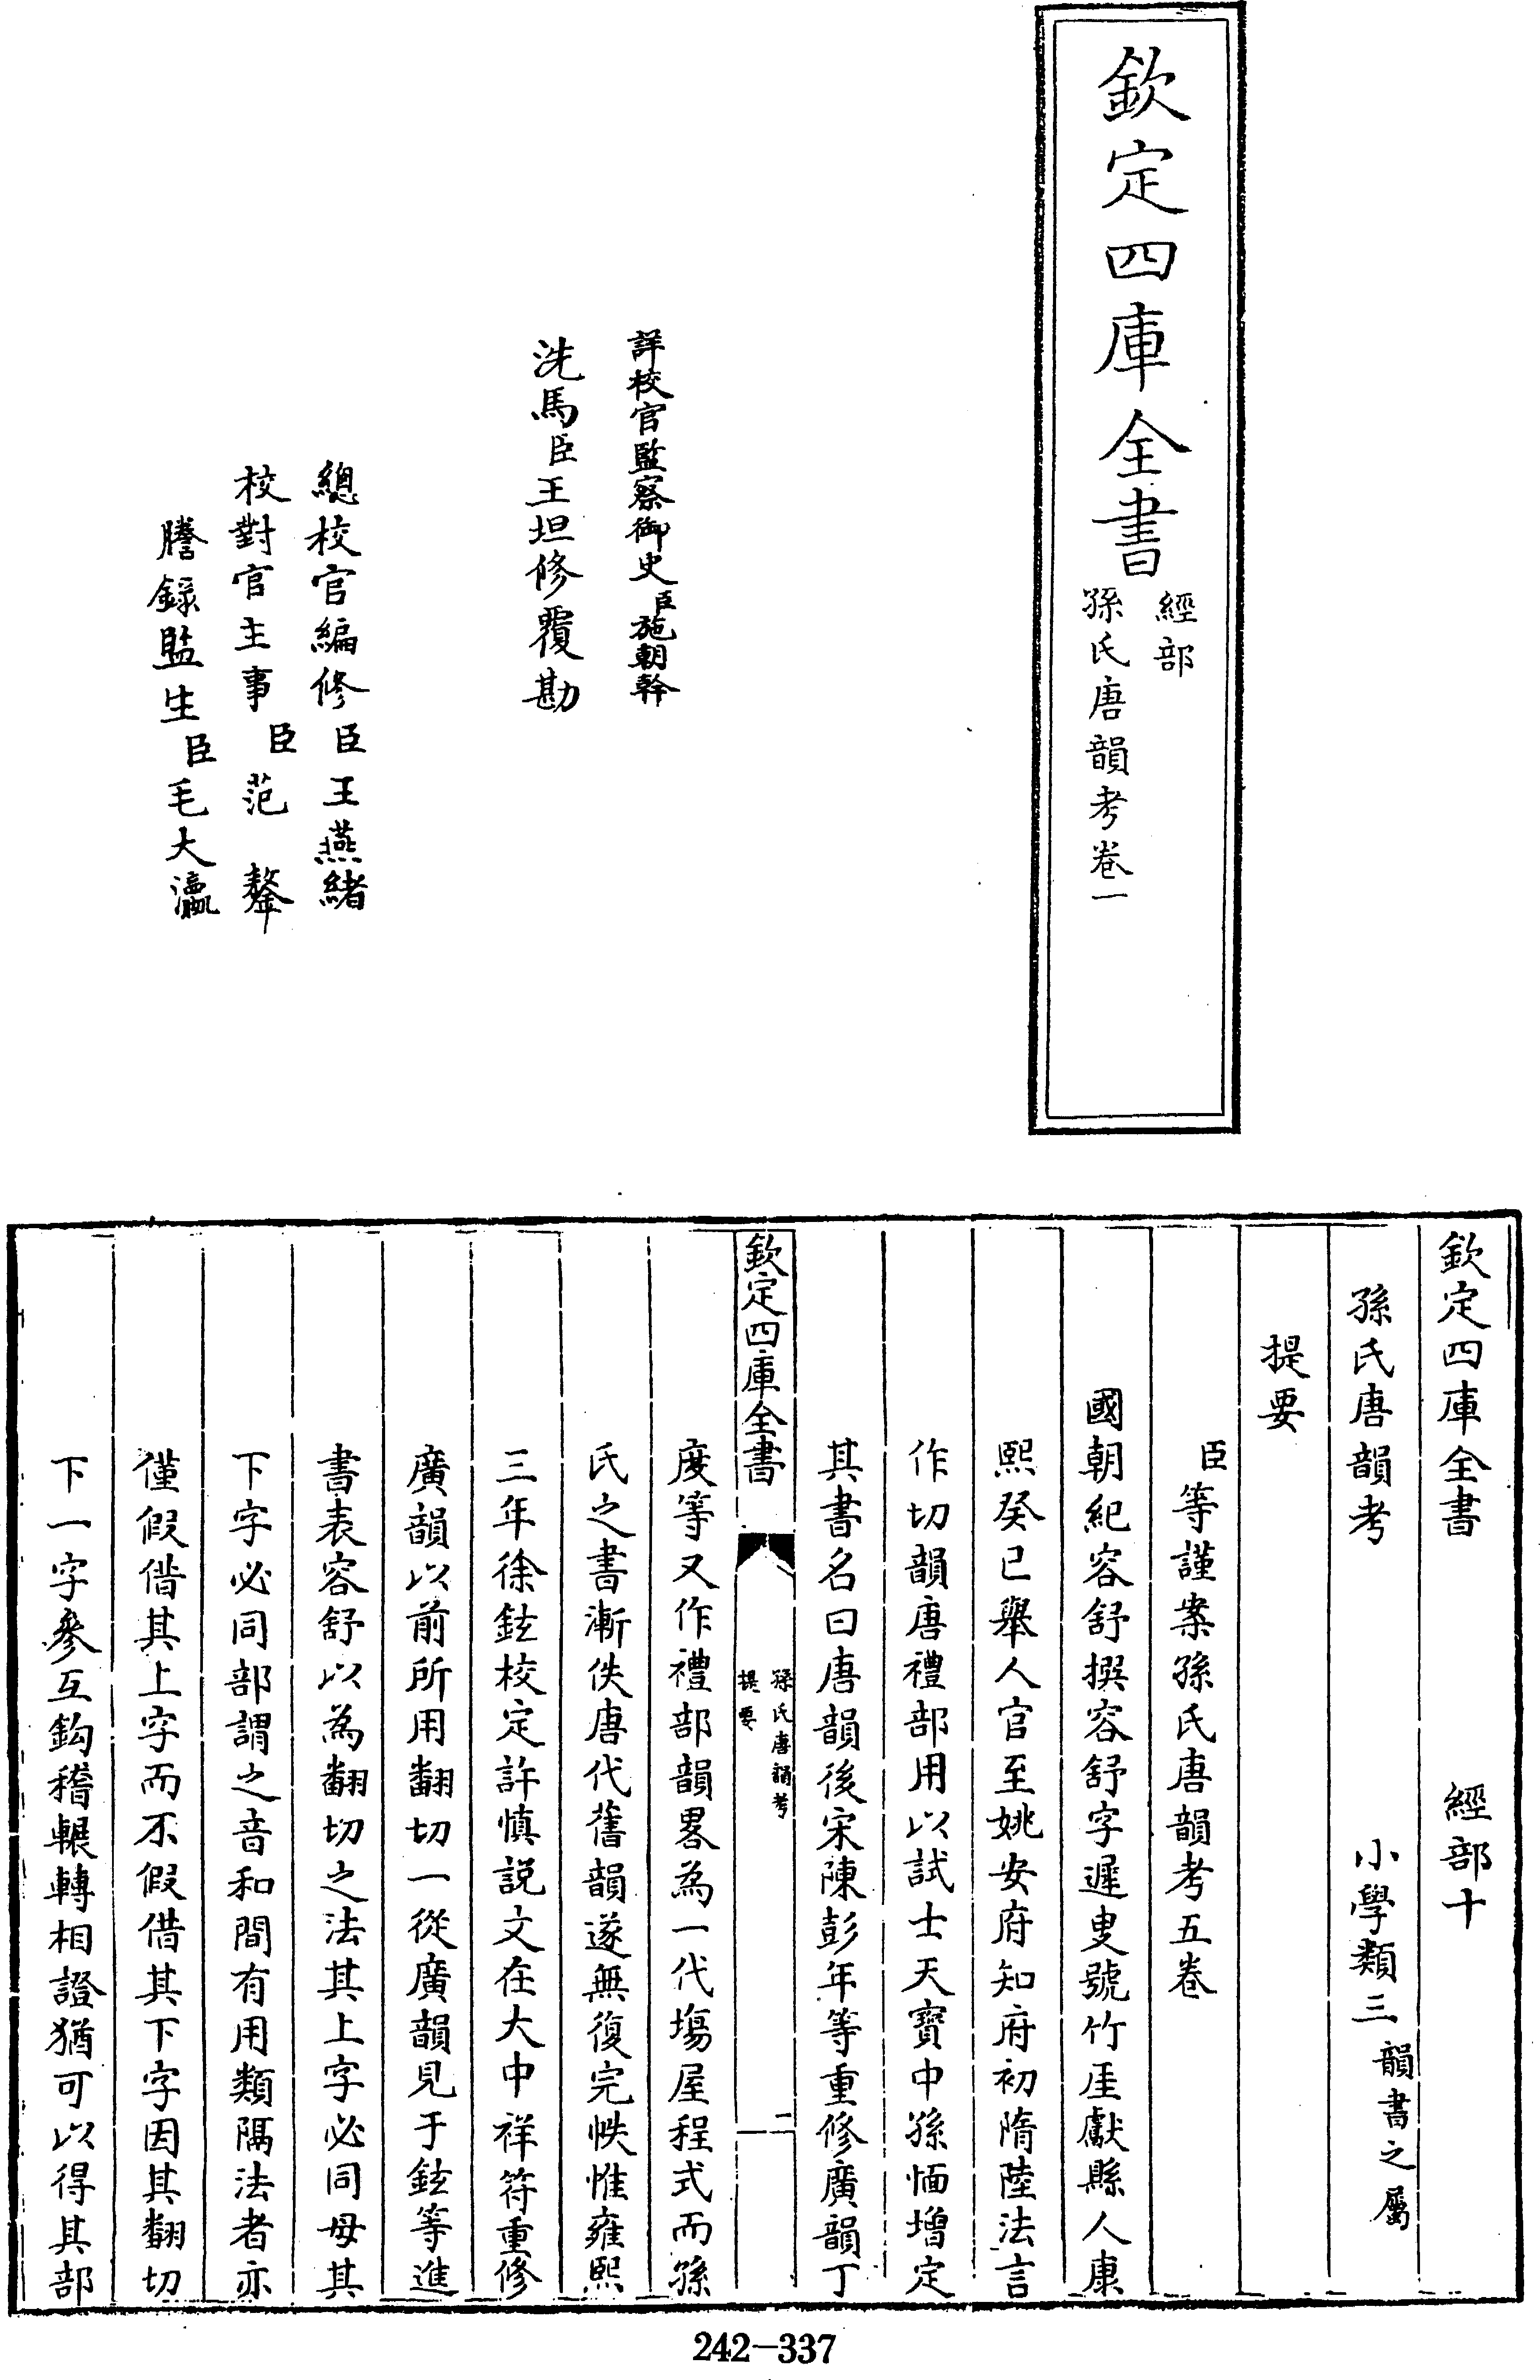 欽定四庫全書
經部
孫氏唐韻考卷一
詳校官監察御史臣施朝幹
洗馬臣王坦修覆勘
總校官編修臣王燕緒
校對官主事臣范鏊
謄錄監生臣毛大瀛
欽定四庫全書　經部十
孫氏唐韻考　小學類三韻書之屬
提要
臣等謹案孫氏唐韻考五卷
國朝紀容舒撰容舒字遲叟號竹厓獻縣人康
熙癸巳舉人官至姚安府知府初隋陸法言
作切韻唐禮部用以試士天寶中孫愐增定
其書名曰唐韻後宋陳彭年等重修廣韻丁
欽定四庫全書
孫氏唐韻考
提要
二
度等又作禮部韻畧為一代塲屋程式而孫
氏之書漸佚唐代舊韻遂無復完帙惟雍熙
三年徐鉉校定許慎說文在大中祥符重修
廣韻以前所用翻切一從廣韻見于鉉等進
書表容舒以為翻切之法其上字必同母其
下字必同部謂之音和間有用類隔法者亦
僅假借其上字而不假借其下字因其翻切
下一字參互鈎稽輾轉相證猶可以得其部
242-337